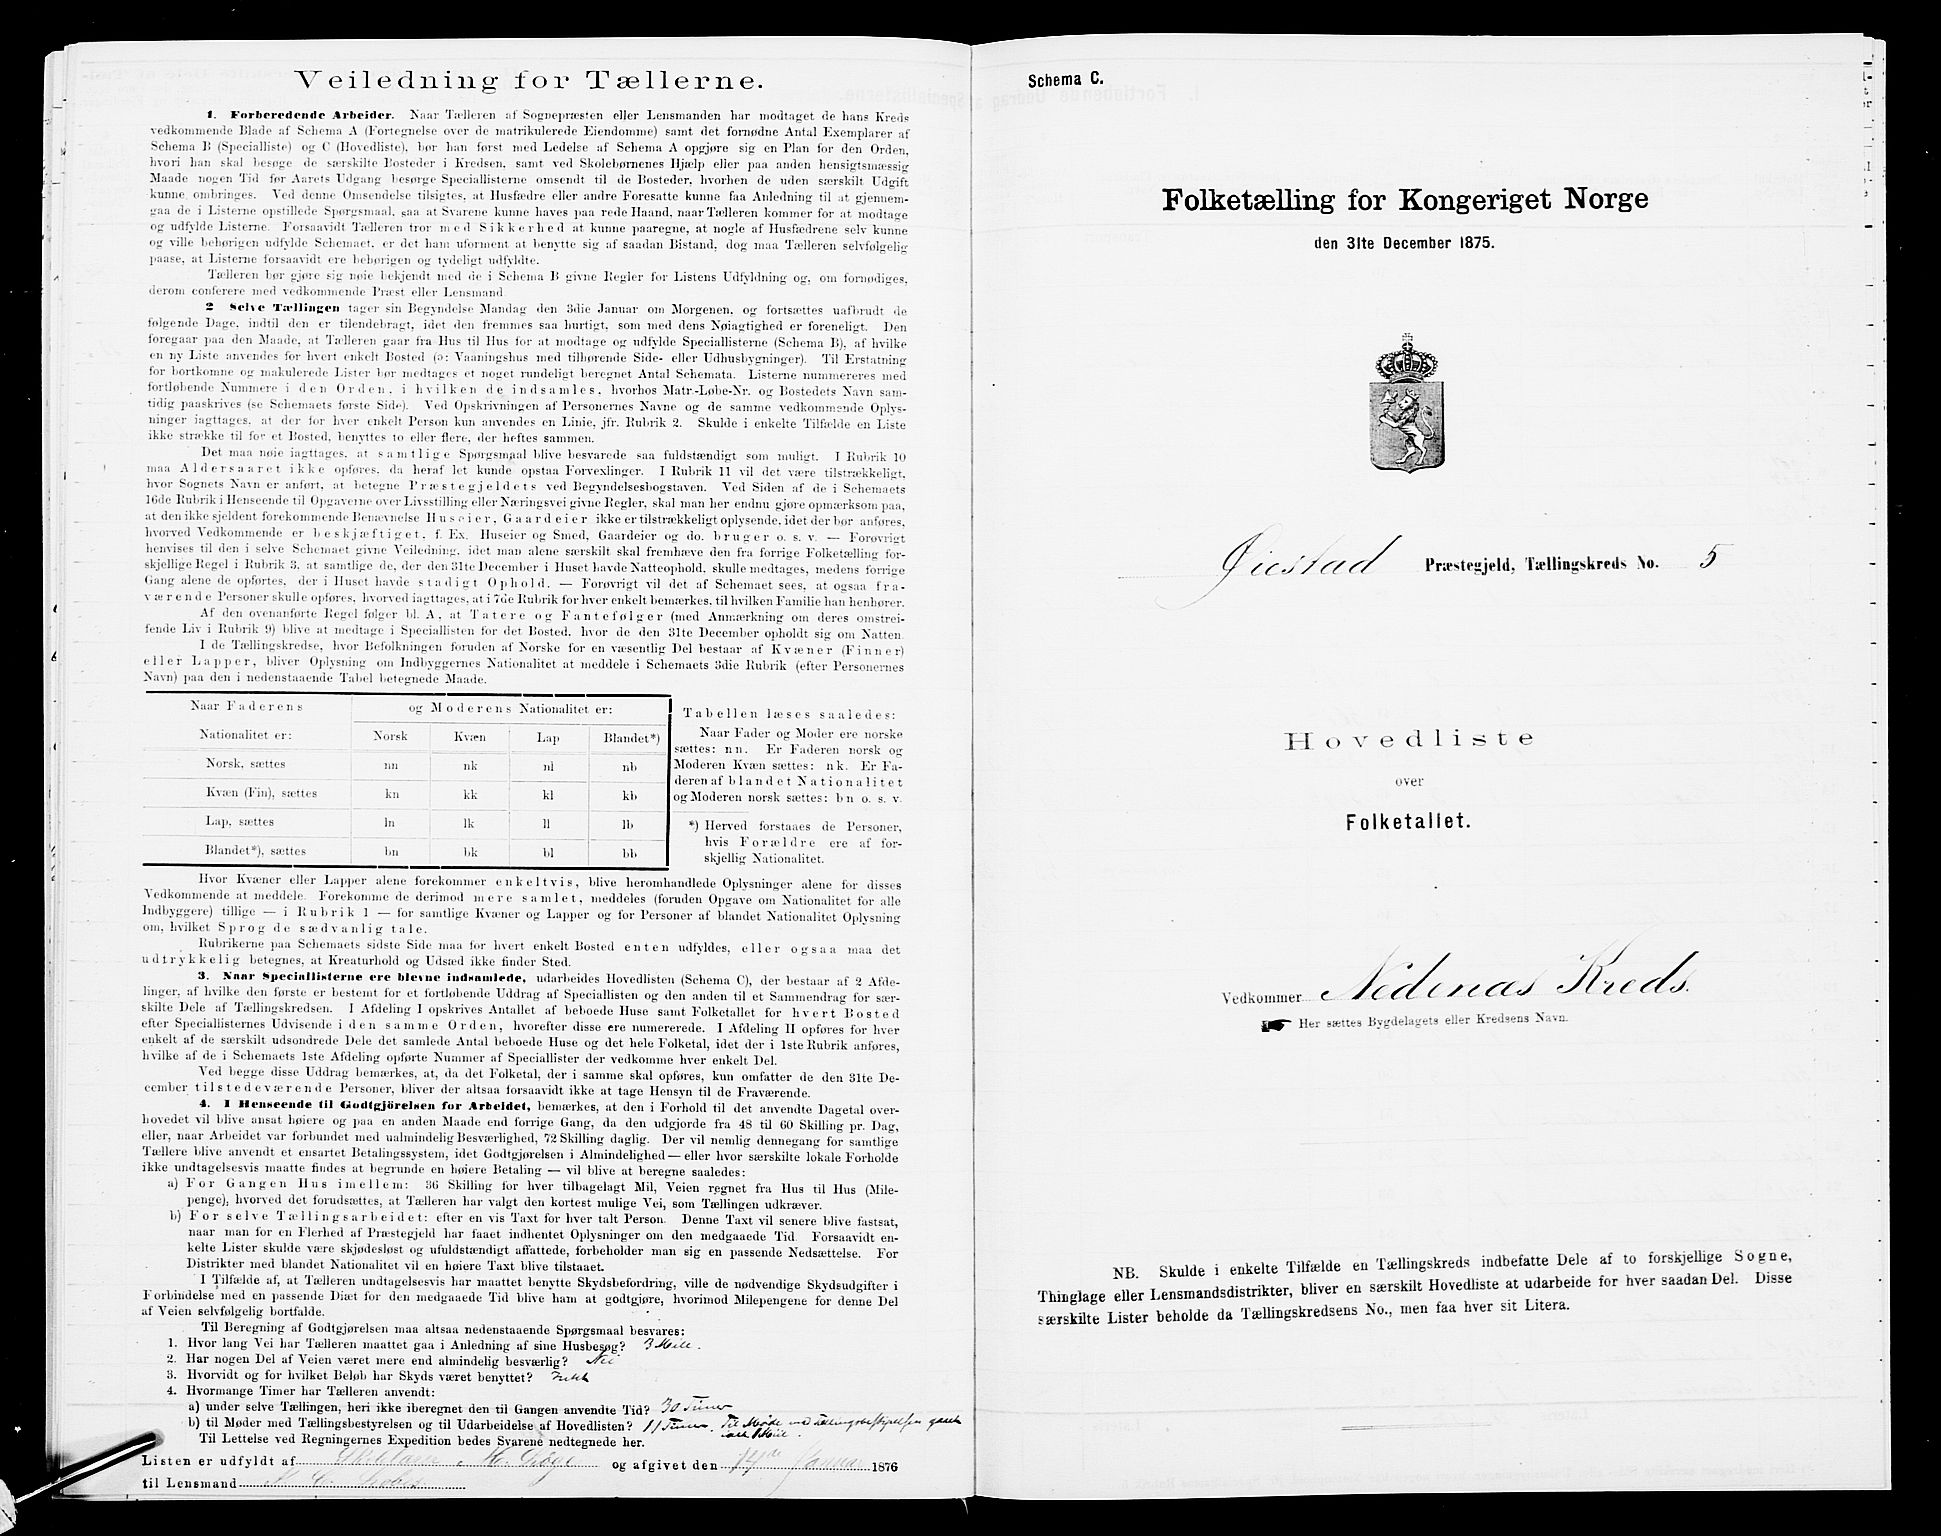 Veiledning for Tællerne.
1. Forberedende Arbeider. Naar Tælleren af Sognepræsten eller Lensmanden har modtaget de hans Kreds
vedkommende Blade af Schema A (Fortegnelse over de matrikulerede Eiendomme) samt det fornødne Antal Exemplarer af
Schema B (Specialliste) og C (Hovedliste), bør han først med Ledelse af Schema A opgjøre sig en Plan for den Orden,
hvori han skal besøge de særskilte Bosteder i Kredsen, samt ved Skolebørnenes Hjælp eller paa anden hensigtsmæssig
Maade nogen Tid før Aarets Udgang besørge Speciallisterne omsendt til de Bosteder, hvorhen de uden særskilt Udgift
kunne ombringes. Ved denne Omsendelse tilsigtes, at Husfædre eller andre Foresatte kunne faa Anledning til at gjennem-
gaa de i Listerne opstillede Spørgsmaal, saa at Svarene kunne haves paa rede Haand, naar Tælleren kommer for at modtage
og udfylde Listerne. Forsaavidt Tælleren tror med Sikkerhed at kunne paaregne, at nogle af Husfædrene selv kunne
og ville behørigen udfylde Schemaet, er det ham uforment at benytte sig af saadan Bistand, dog maa Tælleren selvfølgelig
paase, at Listerne forsaavidt ere behørigen og tydeligt udfyldte.
Tælleren bør gjøre sig nøie bekjendt med de i Schema B givne Regler for Listens Udfyldning og, om fornødiges,
derom conferere med vedkommende Præst eller Lensmand.
2 Selve Tællingen tager sin Begyndelse Mandag den 3die Januar om Morgenen, og fortsættes uafbrudt de
følgende Dage, indtil den er tilendebragt, idet den fremmes saa hurtigt, som med dens Nøiagtighed er foreneligt. Den
foregaar paa den Maade, at Tælleren gaar fra Hus til Hus for at modtage og udfylde Speciallisterne (Schema B), af hvilke
en ny Liste anvendes for hvert enkelt Bosted (ɔ: Vaaningshus med tilhørende Side- eller Udhusbygninger). Til Erstatning
for bortkomne og makulerede Lister bør medtages et noget rundeligt beregnet Antal Schemata. Listerne nummereres med
fortløbende Nummere i den Orden, i hvilken de indsamles, hvorhos Matr.-Løbe-Nr. og Bostedets Navn sam-
tidig paaskrives (se Schemaets første Side). Ved Opskrivningen af Personernes Navne og de samme vedkommende Oplys-
ninger iagttages, at der for hver enkelt Person kun anvendes en Linie, jfr. Rubrik 2. Skulde i enkelte Tilfælde en Liste
ikke strække til for et Bosted, benyttes to eller flere, der heftes sammen.
Det maa nøie iagttages, at samtlige Spørgsmaal blive besvarede saa fuldstændigt som muligt. I Rubrik 10
maa Aldersaaret ikke opføres, da heraf let kunde opstaa Forvexlinger. I Rubrik 11 vil det være tilstrækkeligt,
hvor Sognets Navn er anført, at betegne Præstegjeldets ved Begyndelsesbogstaven. Ved Siden af de i Schemaets
16de Rubrik i Henseende til Opgaverne over Livsstilling eller Næringsvei givne Regler, skal man her endnu gjøre opmærksom paa,
at den ikke sjeldent forekommende Benævnelse Huseier, Gaardeier ikke er tilstrækkeligt oplysende, idet der bør anføres,
hvorved Vedkommende er beskjæftiget, f. Ex. Huseier og Smed, Gaardeier og do. bruger o. s. v. — Forøvrigt
henvises til den i selve Schemaet givne Veiledning, idet man alene særskilt skal fremhæve den fra forrige Folketælling for-
skjellige Regel i Rubrik 3, at samtlige de, der den 31te December i Huset havde Natteophold, skulle medtages, medens forrige
Gang alene de opførtes, der i Huset havde stadigt Ophold. — Forøvrigt vil det af Schemaet sees, at ogsaa fra-
værende Personer skulle opføres, hvorved iagttages, at i 7de Rubrik for hver enkelt bemærkes, til hvilken Familie han henhører.
Af den ovenanførte Regel følger bl. A., at Tatere og Fantefølger (med Anmærkning om deres omstrei-
fende Liv i Rubrik 9) blive at medtage i Speciallisten for det Bosted, hvor de den 31te December opholdt sig om Natten.
I de Tællingskredse, hvor Befolkningen foruden af Norske for en væsentlig Del bestaar af Kvæner (Finner)
eller Lapper, bliver Oplysning om Indbyggernes Nationalitet at meddele i Schemaets 3die Rubrik (efter Personernes
Navn) paa den i nedenstaaende Tabel betegnede Maade.
Naar Faderens og Moderens Nationalitet er:
Nationalitet er: Norsk Kvæn Lap Blandet*)
Norsk, sættes nn nk nl nb
Kvæn (Fin), sættes kn kk kl kb
Lap, sættes ln lk ll lb
Blandet*), sættes bn bk bl bb
Tabellen læses saaledes:
Naar Fader og Moder ere norske
sættes: nn. Er Faderen norsk og
Moderen Kvæn sættes: nk. Er Fa-
deren af blandet Nationalitet
og Moderen norsk sættes: bn o. s. v.
*) Herved forstaaes de Personer,
hvis Forældre ere af for-
skjellig Nationalitet.
Hvor Kvæner eller Lapper alene forekommer enkeltvis, blive heromhandlede Oplysninger alene for disses
Vedkommende at meddele. Forekomme de derimod mere samlet, meddeles (foruden Opgave om Nationalitet for alle
Indbyggere) tillige — i Rubrik 1 — for samtlige Kvæner og Lapper og for Personer af blandet Nationalitet Oplysning
om, hvilket Sprog de sædvanlig tale.
Rubrikerne paa Schemaets sidste Side maa for hvert enkelt Bosted enten udfyldes, eller ogsaa maa det
udtrykkelig betegnes, at Kreaturhold og Udsæd ikke finder Sted.
3. Naar Speciallisterne ere blevne indsamlede, udarbeides Hovedlisten (Schema C), der bestaar af 2 Afde-
linger, af hvilke den første er bestemt for et fortløbende Uddrag af Speciallisten og den anden til et Sammendrag for sær-
skilte Dele af Tællingskredsen. I Afdeling I opskrives Antallet af beboede Huse samt Folketallet for hvert Bosted
efter Speciallisternes Udvisende i den samme Orden, hvorefter disse ere numererede. I Afdeling II opføres for hver
enkelt af de særskilt udsondrede Dele det samlede Antal beboede Huse og det hele Folketal, idet der i 1ste Rubrik anføres,
hvilke af de i Schemaets 1ste Afdeling opførte Nummer af Speciallister der vedkomme hver enkelt Del.
Ved begge disse Uddrag bemærkes, at, da det Folketal, der i samme skal opføres, kun omfatter de den 31te De-
cember tilstedeværende Personer, bliver der altsaa forsaavidt ikke at tage Hensyn til de Fraværende.
4. I Henseende til Godtgjörelsen for Arbeidet, bemærkes, at den i Forhold til det anvendte Dagetal over-
hovedet vil blive ansat høiere og paa en anden Maade end forrige Gang, da den udgjorde fra 48 til 60 Skilling pr. Dag,
eller, naar Arbeidet var forbundet med ualmindelig Besværlighed, 72 Skilling daglig. Der vil nemlig dennegang for samtlige
Tællere blive anvendt et ensartet Betalingssystem, idet Godtgjørelsen i Almindelighed — eller hvor særskilte lokale Forholde
ikke undtagelsesvis maatte findes at begrunde en høiere Betaling — vil blive at beregne saaledes:
a) For Gangen Hus imellem: 36 Skilling for hver tilbagelagt Mil, Veien regnet fra Hus til Hus (Mile-
penge), hvorved det forudsættes, at Tælleren har valgt den kortest mulige Vei, som Tællingen udkræver.
b) For selve Tællingsarbeidet: efter en vis Taxt for hver talt Person. Denne Taxt vil senere blive fastsat,
naar man for en Flerhed af Præstegjeld har faaet indhentet Oplysninger om den medgaaede Tid. Forsaavidt en-
kelte Lister skulde være skjødesløst og ufuldstændigt affattede, forbeholder man sig en passende Nedsættelse. For
Distrikter med blandet Nationalitet vil en høiere Taxt blive tilstaaet.
I Tilfælde af, at Tælleren undtagelsesvis har maattet benytte Skydsbefordring, ville de nødvendige Skydsudgifter i
Forbindelse med en passende Diæt for den medgaaede Tid blive ham at godtgjøre, hvorimod Milepengene for denne Del
af Veien selvfølgelig bortfalde.
Til Beregning af Godtgjørelsen maa altsaa nedenstaaende Spørgsmaal besvares:
1. Hvor lang Vei har Tælleren maattet gaa i Anledning af sine Husbesøg? 3 Mile.
2. Har nogen Del af Veien været mere end almindelig besværlig? Nei
3. Hvorvidt og for hvilket Beløb har Skyds været benyttet? Ikke
4. Hvormange Timer har Tælleren anvendt:
a) under selve Tællingen, heri ikke iberegnet den til Gangen anvendte Tid? 30 Timer
b) til Møder med Tællingsbestyrelsen og til Udarbeidelse af Hovedlisten? 11 Timer. Til Møde med Tællingsbestyrelsen gaaet
1 Mil.
Til Lettelse ved Regningernes Expedition bedes Svarene nedtegnede her.
Listen er udfyldt af og afgivet den 14de Januar 1876
til Lensmand
Schema C.
Folketælling for Kongeriget Norge
den 31te December 1875.
Øiestad Præstegjeld, Tællingskreds No. 5
Hovedliste
over
Folketallet.
Vedkommer Nedenæs Kreds.
Her sættes Bygdelagets eller Kredsens Navn.
NB. Skulde i enkelte Tilfælde en Tællingskreds indbefatte Dele af to forskjellige Sogne,
Thinglage eller Lensmandsdistrikter, bliver en særskilt Hovedliste at udarbeide for hver saadan Del. Disse
særskilte Lister beholde da Tællingskredsens No., men faa hver sit Litera.